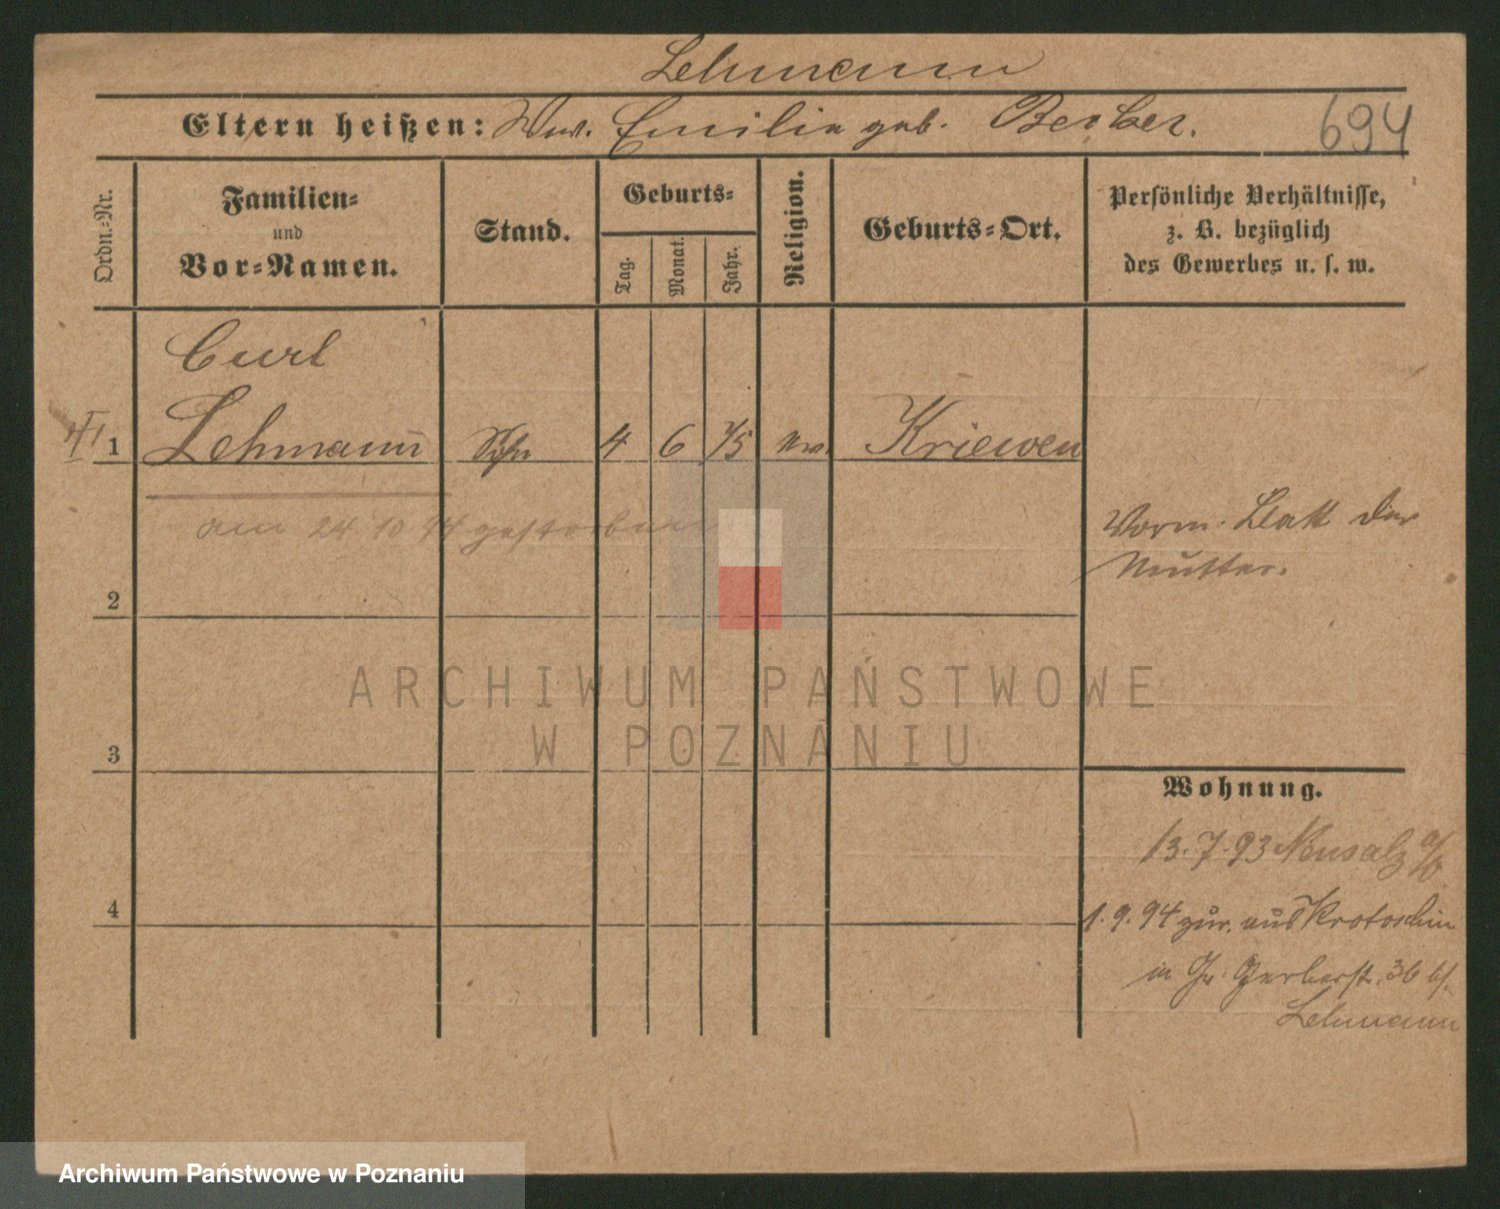 Lehmann
Eltern heißen: Ww. Emilie geb. Becker.
694
Ordn.-Nr.
Familien-
und
Vor-Namen.
Stand.
Geburts-
Tag.
Monat.
Jahr.
Religion.
Geburts-Ort.
Persönliche Verhältnisse,
z. B. bezüglich
des Gewerbes u. s. w.
Curt
1 Lehmann Sohn 4 6 75 Kriewen
am 24 10 94 gestorben
Vorm. Blatt der
Mutter.
2
ARCHIWUM PAŃSTWOWE
W POZNANIU
3
Wohnung.
13.7.93 Neusalz a/O
4
1.9.94 zur. aus Krotoschin
in Gr. Gerberstr. 36 b/.
Lehmann
Archiwum Państwowe w Poznaniu